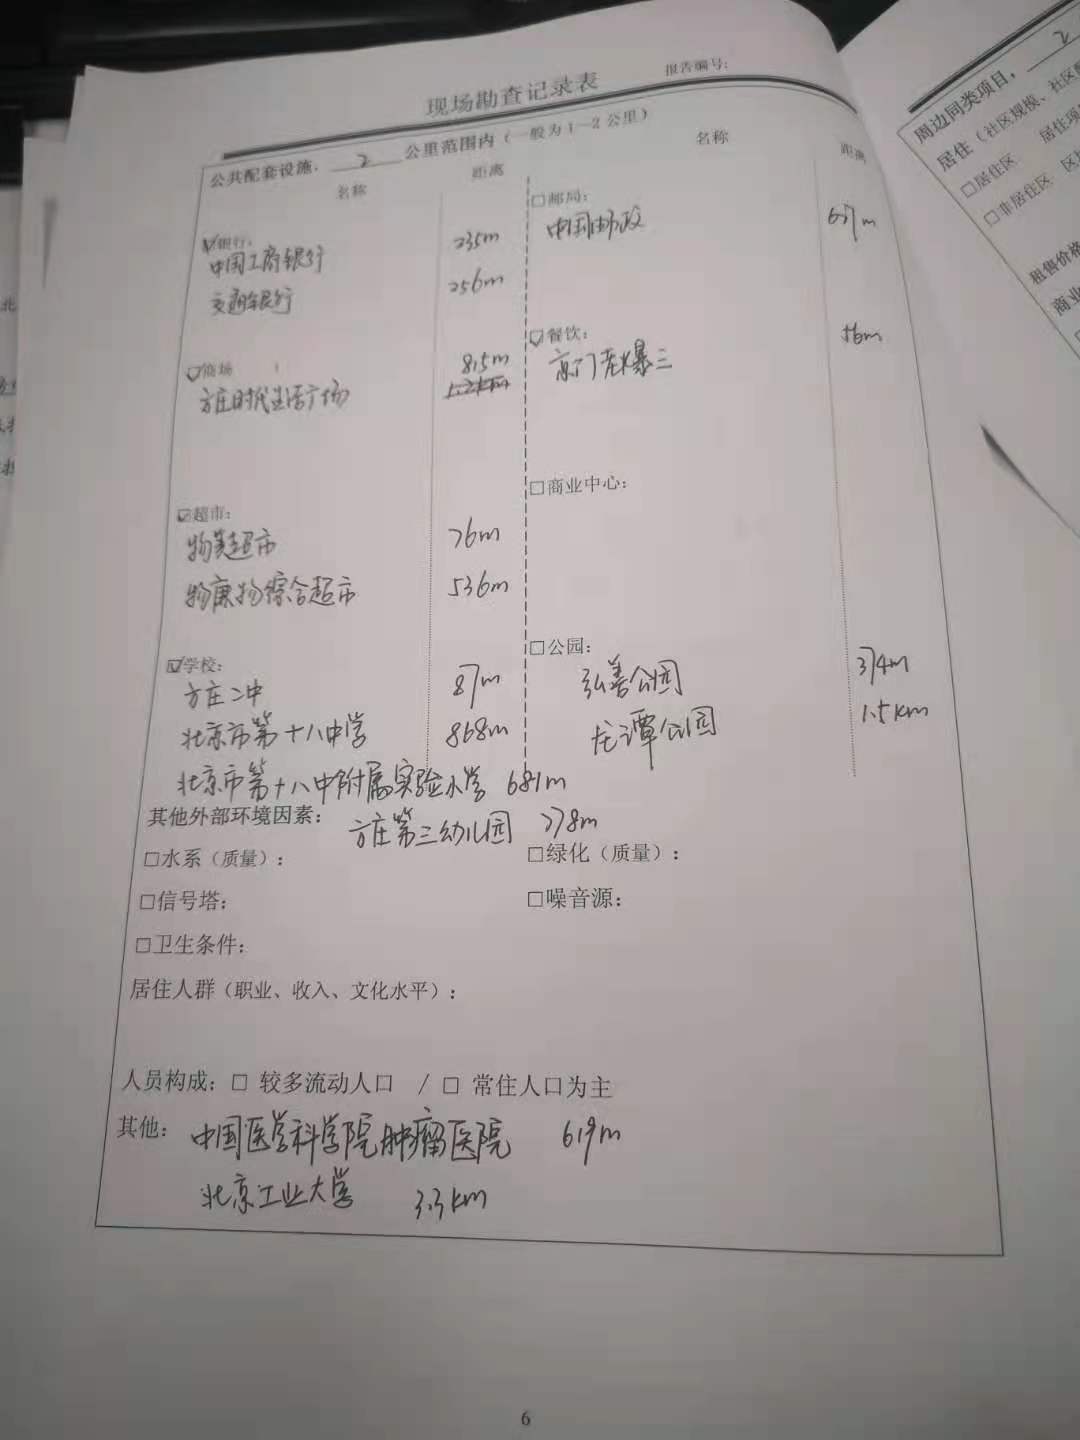 现场勘查记录表
报告编号:
公共配套设施， 2 公里范围内（一般为1—2公里）
名称 距离 名称 距离
☑银行: □邮局:
中国工商银行 235m 中国邮政 637m
交通银行 256m
☑商场 ☑餐饮:
方庄时代生活广场 815m 京门老爆三 56m
☑超市: □商业中心:
物美超市 76m
物康物综合超市 536m
☑学校: □公园:
方庄二中 87m 弘善公园 374m
北京市第十八中学 868m 龙潭公园 1.5km
北京市第十八中附属实验小学 681m
其他外部环境因素: 方庄第三幼儿园 278m
□水系（质量）: □绿化（质量）:
□信号塔: □噪音源:
□卫生条件:
居住人群（职业、收入、文化水平）:
人员构成: □ 较多流动人口 / □ 常住人口为主
其他: 中国医学科学院肿瘤医院 619m
北京工业大学 3.3km
6
周边同类项目， 2
居住（社区规模、社区
□居住区 居住项
□非居住区 区
租售价格
商业